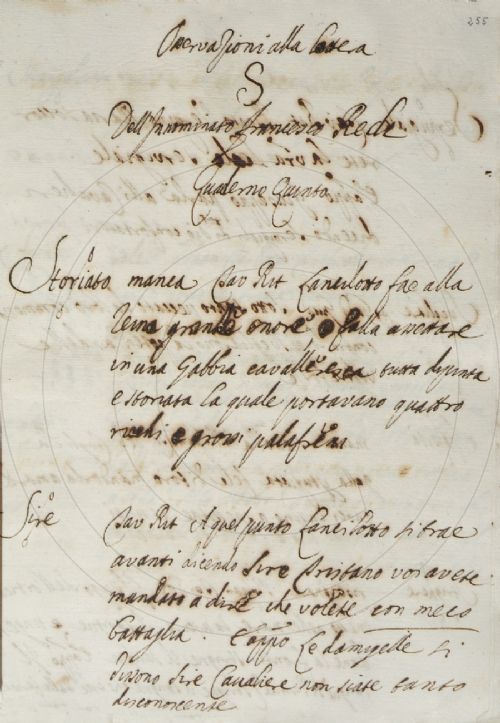 255
Osservazioni alla lettera
S
Dell'Innominato Francesco Redi
Quaderno Quinto
Storiato manca Tav Rit Lancilotto fae alla
Reina grande onore e falla assettare
in una gabbia cavalleresca tutta dipinta
e storiata la quale portavano quattro
ricchi e grossi palafreni
Sire Tav Rit A quel punto Lancilotto si trae
avanti dicendo Sire Tristano voi avete
mandato a dire che volete con meco
battaglia. E appo Le damigelle si
dissono Sire Cavaliere non siate tanto
disconoscente